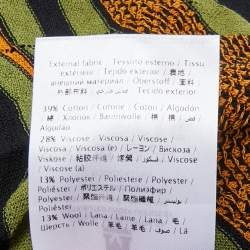 External fabric / Tessuto esterno / Tissu
extérieur / Tejido exterior / 表地 /
Tecido exterior / Oberstoff / 面料
外部布料 /
39% Cotton / Cotone / Coton / Algodón
/ 綿 / Хлопок / Baumwolle / 棉 / 棉 / قطن /
Algodão
28% Viscose / Viscosa / Viscose /
Viscosa / Viscosa / レーヨン / Вискоза /
Viskose / 粘胶纤维 / فسكوز /
13% Polyester / Poliestere / Polyester /
Poliéster / ポリエステル / Полиэфир /
Polyester / 聚酯纤维 /
Poliéster
13% Wool / Lana / Laine / Lana / 毛 /
Шерсть / Wolle / 羊毛 / 羊毛 / صوف / Lã